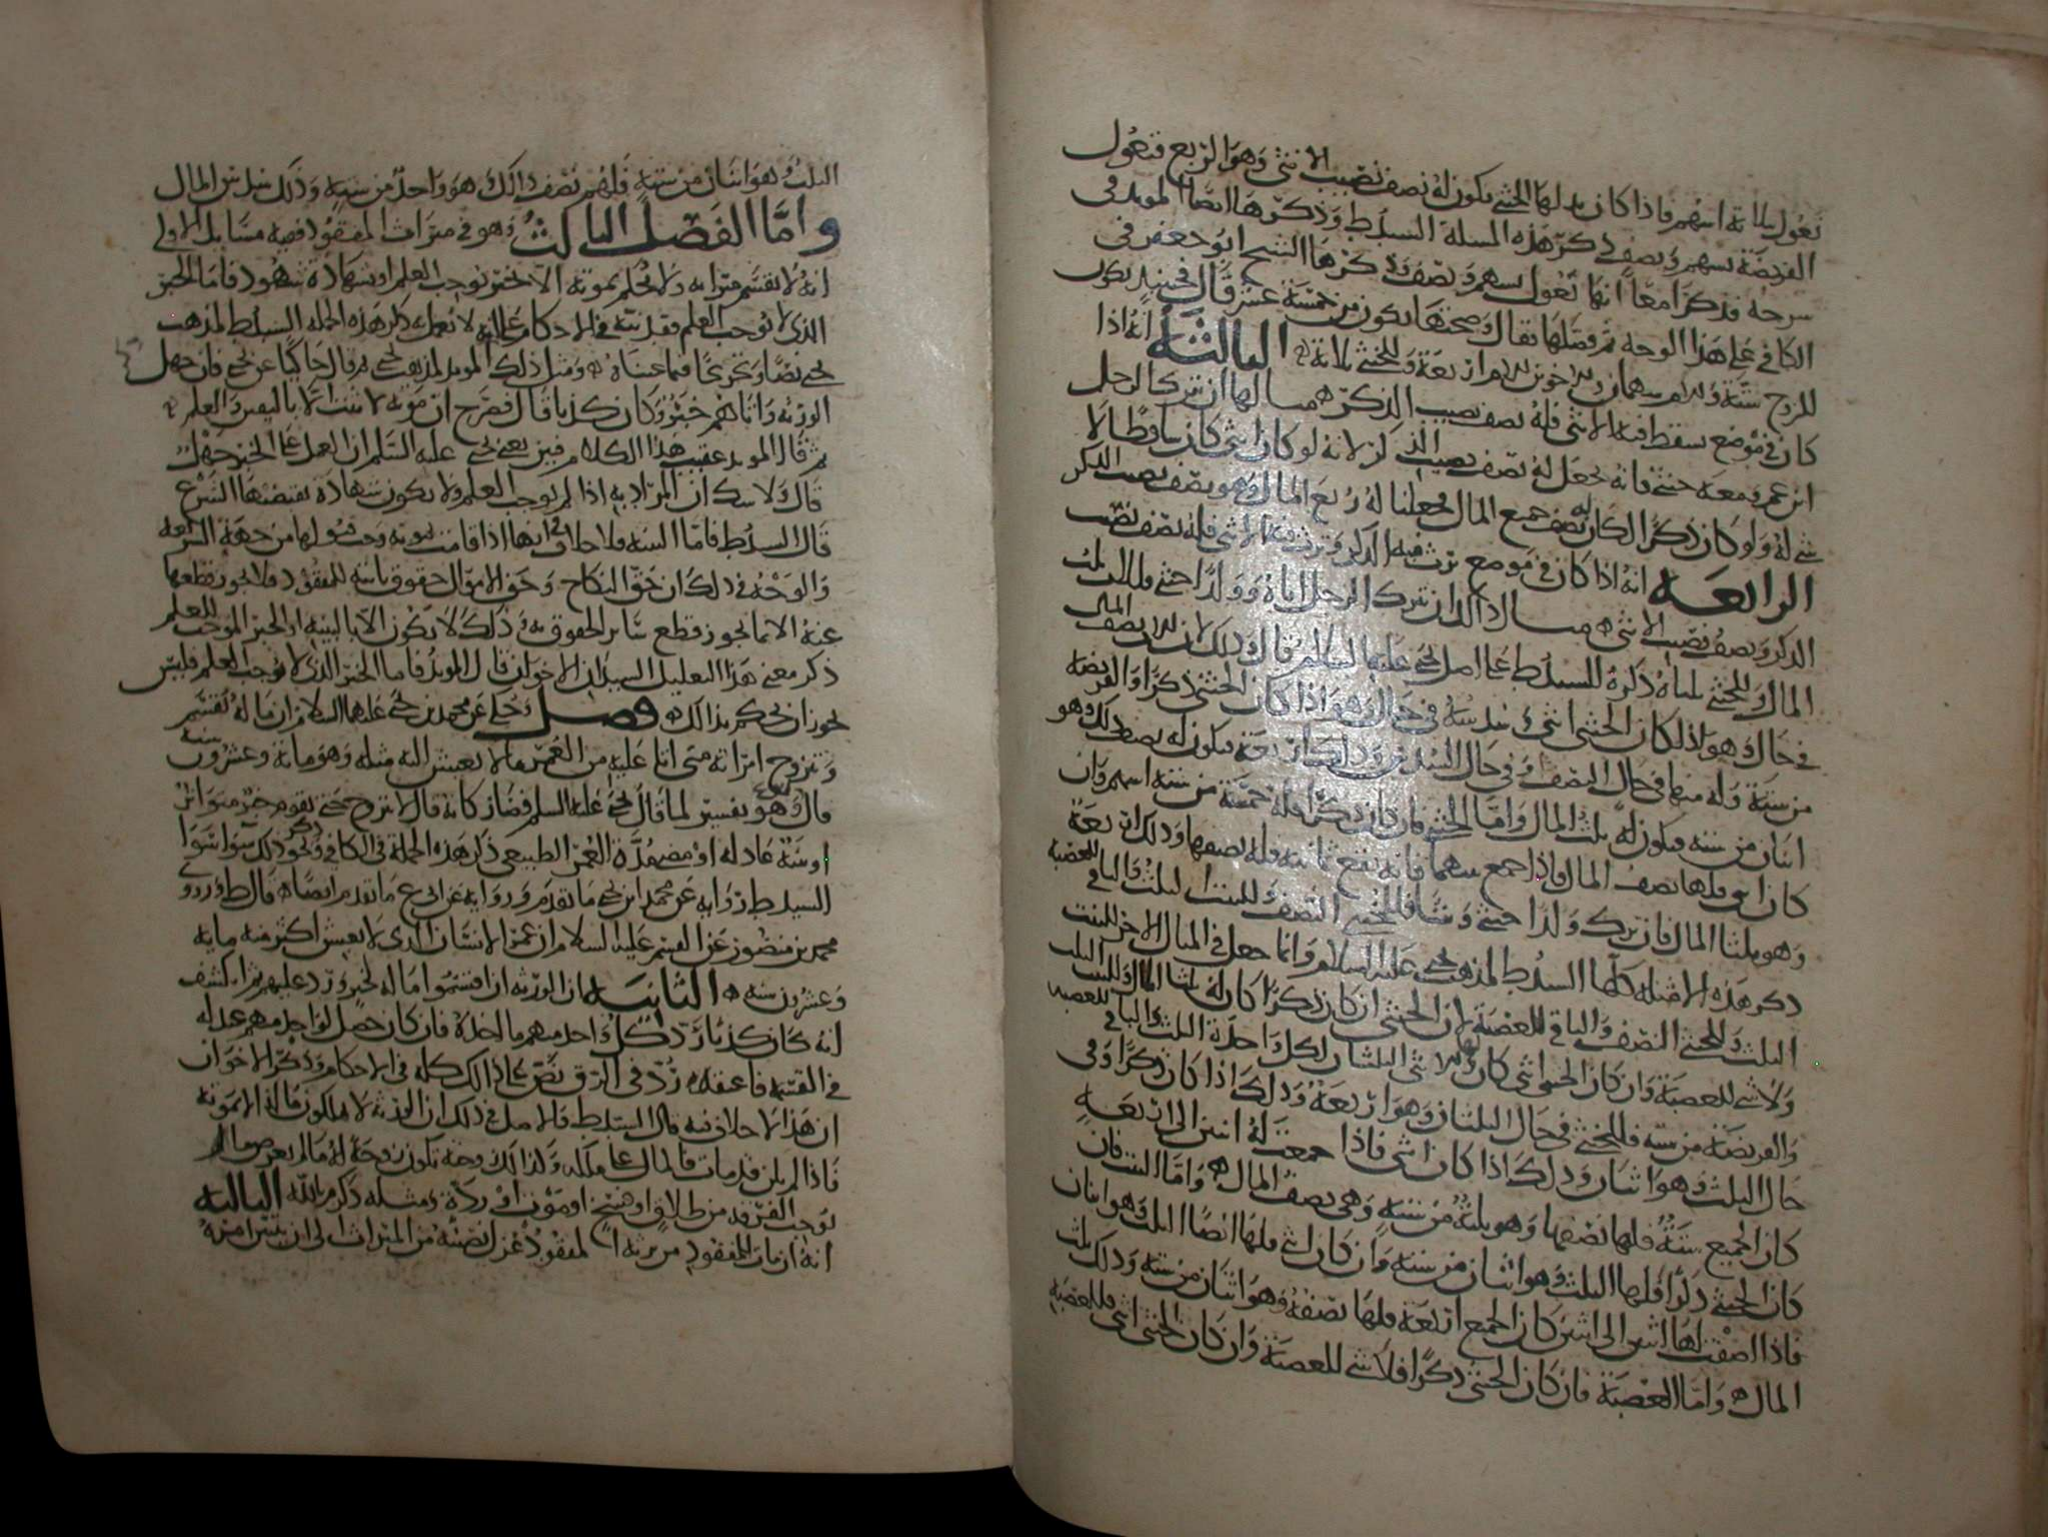 تعول بثلاثة اسهم فاذا كان بدلها الخنثى يكون له نصف نصيب الانثى وهو الربع فتعول
الفريضة بسهم ونصف ذكر هذه المسلة السيد ط وذكرها ايضا المويد في
شرحه فذكرا معا انها تعول بسهم ونصف وذكرها الشيخ ابو جعفر في
الكافي على هذا الوجه ثم فصلها فقال وصحتها يكون من خمسة عشر قال فحينيذ يكون
للزوج ستة وللام سهمان وللاخوين للام اربعة وللخنثى ثلاثة الثالثة انه اذا
كان في موضع يسقط فيه الانثى فله نصف نصيب الذكر مسالها ان يترك الرجل
ابن عم ومعه خنثى فانه يجعل له نصف نصيب الذكر لانه لو كان انثى كان ساقطا لا
شي له ولو كان ذكرا لكان له نصف جميع المال فجعلنا له ربع المال وهو نصف نصيب الذكر
الرابعة انه اذا كان في موضع يرث فيه الذكر وترث فيه الانثى فله نصف نصيب
الذكر ونصف نصيب الانثى مسال ذلك ان يترك الرجل ابنة وولدا خنثى فللبنت ثلث
المال وللخنثى ثلثاه ذكره السيد ط على اصل يحيى عليه السلام قال وذلك لان للبنت نصف المال
في حال وهو اذا كان الخنثى انثى وثلثه في حال وهو اذا كان الخنثى ذكرا والفريضة
من ستة وله منها في حال النصف وفي حال الثلث
اثنان من ستة فيكون له ثلث المال واما الخنثى فان كان ذكرا فله خمسة من ستة اسهم وان
كان انثى فلها نصف المال فاذا جمع سهمها فانه يقع ثمانية فله نصفها وذلك اربعة
وهو ثلثا المال فان ترك ولدا خنثى وبنتا فللخنثى النصف وللبنت الثلث والباقي للعصبة
ذكر هذه الامثلة كلها السيد ط لمذهب يحيى عليه السلام وانما جعل في المثال الاخر للبنت
الثلث وللخنثى النصف والباقي للعصبة لان الخنثى ان كان ذكرا كان له ثلثا المال وللبنت الثلث
ولا شي للعصبة وان كان الخنثى انثى كان لهما الثلثان لكل واحدة الثلث والباقي للعصبة
والفريضة من ستة فللخنثى في حال الثلثان وهو اربعة وذلك اذا كان ذكرا وفي
حال الثلث وهو اثنان وذلك اذا كان انثى فاذا جمعت له اثنين الى اربعة
كان الجميع ستة فلها نصفها وهو ثلثة من ستة وهي نصف المال واما البنت فان
كان الخنثى ذكرا فلها الثلث وهو اثنان من ستة وان كان انثى فلها ايضا الثلث وهو اثنان
فاذا اضفت لها اثنين الى اثنين كان الجميع اربعة فلها نصفه وهو اثنان من ستة وذلك ثلث
المال واما العصبة فان كان الخنثى ذكرا فلا شي للعصبة وان كان الخنثى انثى فللعصبة
الثلث وهو اثنان من ستة فلهم نصف ذلك وهو واحد من ستة وذلك سدس المال
واما الفصل الثالث وهو في ميراث المفقود ففيه مسايل الاولى
انه لا تقسم ميراثه ولا يحكم بموته الا بخبر يوجب العلم او بشهادة شهود فاما الخبر
الذي لا يوجب العلم فقد نبه في الاحكام على انه لا يعمل به ذكر هذه الجملة السيد ط لمذهب
يحيى نصا وتخريجا فيما عناه ومثل ذلك المويد لمذهب يحيى ثم قال حاكيا عن يحيى فان جهل
الورثة واتاهم خبر وكان كذبا قال فصرح ان موته لا يثبت الا باليقين والعلم
ثم قال المويد عقيب هذا الكلام فبين يعني يحيى عليه السلم ان العمل على الخبر جهل
قال ولا شك ان المراد به اذا لم يوجب العلم ولا يكون شهادة يقتضيها الشرع
قال السيد ط فاما البينة فلا خلاف انها اذا قامت بموته وجب قبولها من جهة الشريعة
والوجه في ذلك ان حق النكاح وحق الاموال حقوق ثابتة للمفقود فلا يجوز قطعها
عنه الا بما يجوز قطع ساير الحقوق به وذلك لا يكون الا بالبينة او الخبر الموجب للعلم
ذكر معنى هذا التعليل السيدان الاخوان قال المويد فاما الخبر الذي لا يوجب العلم فليس
يجوز ان يحكم بذلك فصل وحكي عن محمد بن يحيى عليهما السلام ان ماله يقسم
وتتزوج امراته متى اتا عليه من العمر ما لا يعيش اليه مثله وهو مائة وعشرون سنة
قال وهو تفسير لما قال يحيى عليه السلم فصار كانه قال لا تزوج حتى يقوم خبر متواتر
او بينة عادلة او مضي مدة العمر الطبيعي ذكر هذه الجملة في الكافي وذكر نحو ذلك سوا سوا
السيد ط رواية عن محمد ابن يحيى ما تقدم ورواية عن ابي ع ما تقدم ايضا قال ط وروى
محمد بن منصور عن القسم عليه السلام ان عمر الانسان الذي لا يعيش اكثر منه ماية
وعشرون سنة الثانية ان الورثة ان اقتسموا ماله لخبر ورد عليهم ثم انكشف
انه كان كذبا رد كل واحد منهم ما اخذه فان كان حصل لواحد منهم عبد له
في القسمة فاعتقه رد في الرق نص على ذلك كله في الاحكام وذكر الاخوان
ان هذا لا خلاف فيه قال السيد ط فالاصل في ذلك ان الورثة لا يملكون ماله الا بموته
فاذا لم يكن قد مات فالمال على ملكه وكذلك زوجته تكون زوجة له ما لم يعرض ما
يوجب الفرقة من طلاق او فسخ او موت او ردة ومثله ذكر م بالله الثالثة
انه ان مات للمفقود من يرثه المفقود عزل نصيبه من الميراث الى ان يتبين امره